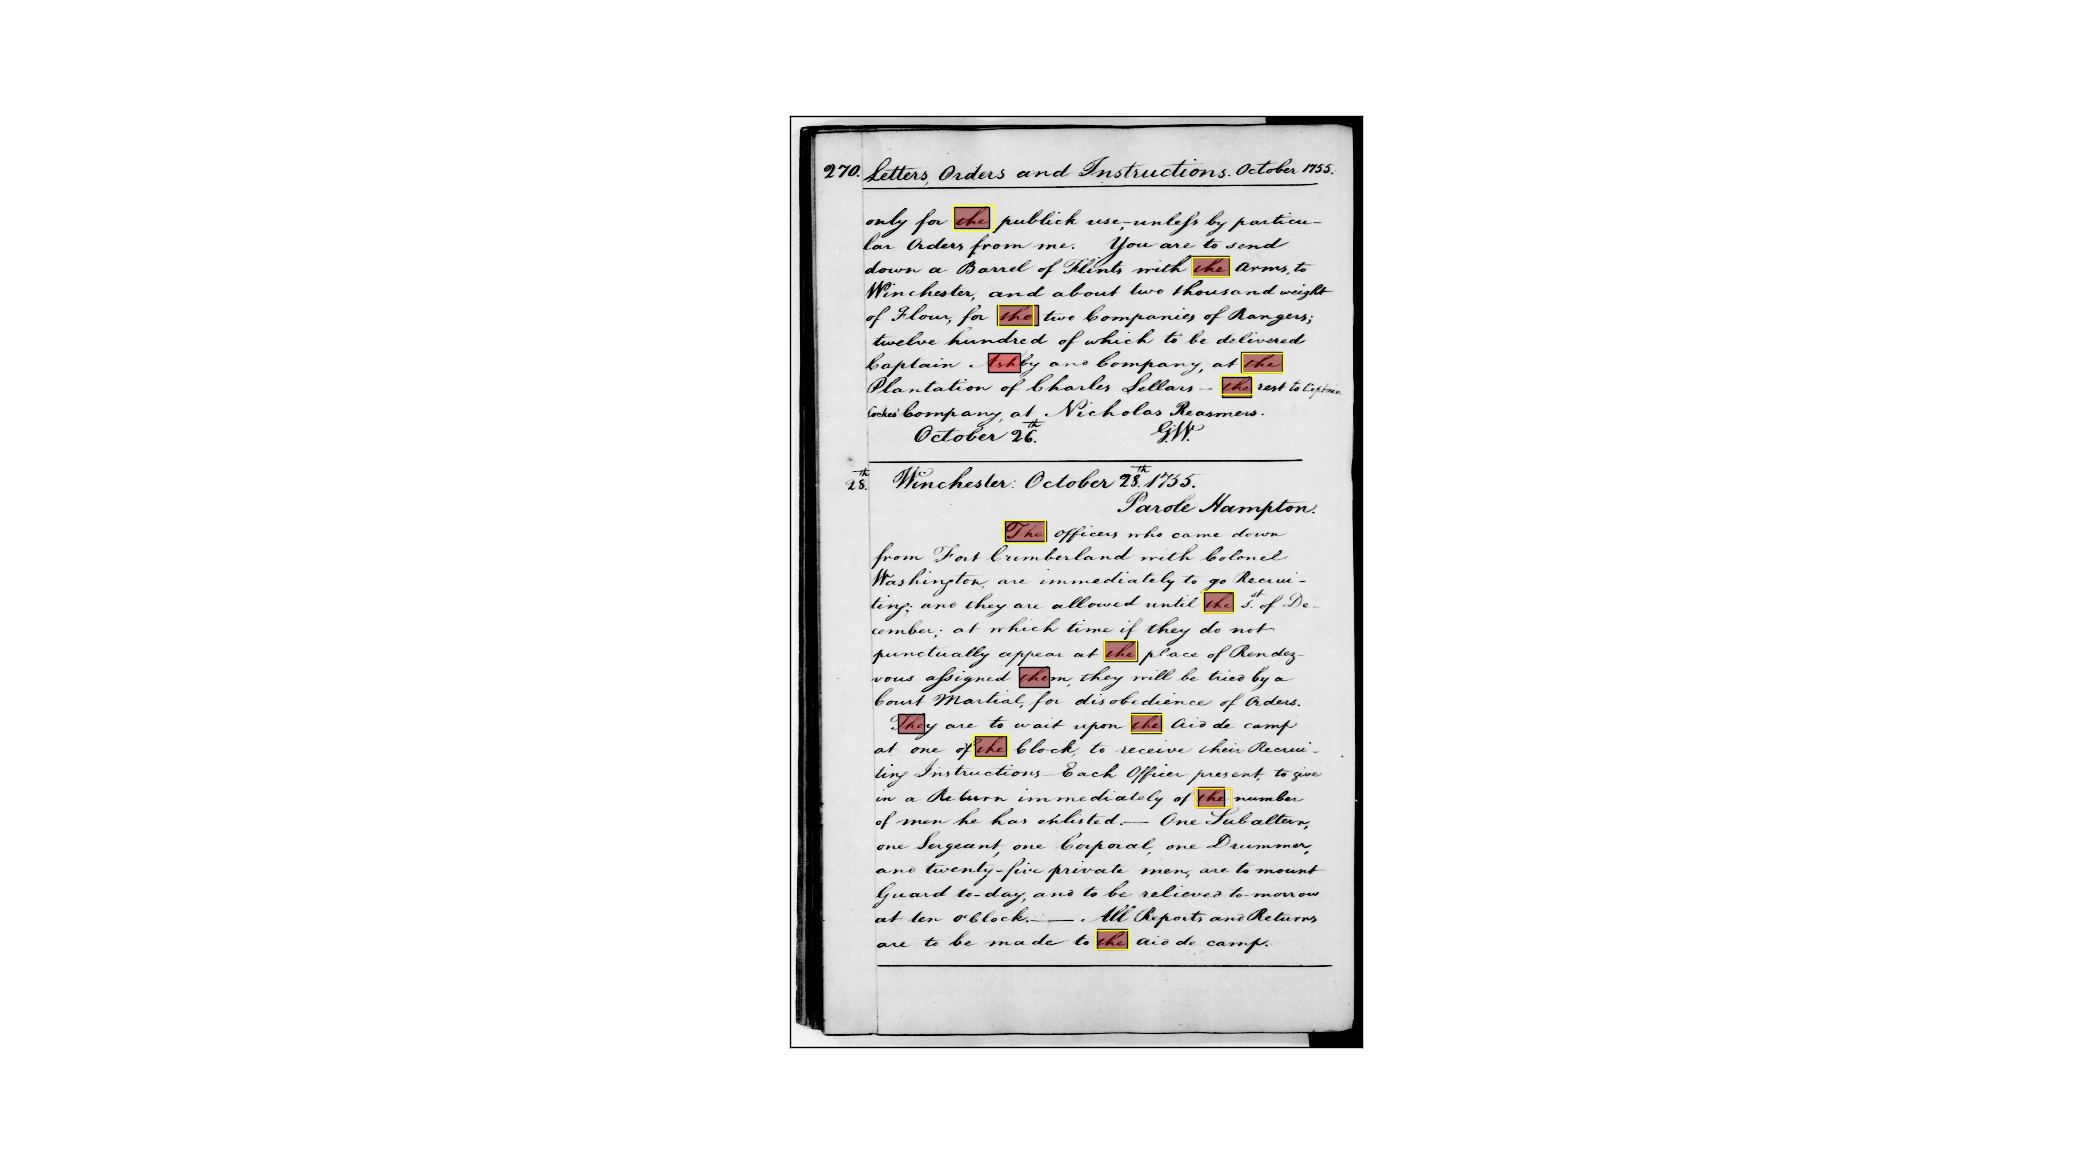 270. Letters, Orders and Instructions. October 1755.
only for the publick use, unless by particu-
lar Orders from me. You are to send
down a Barrel of Flints with the Arms, to
Winchester, and about two thousand weight
of Flour, for the two Companies of Rangers;
twelve hundred of which to be delivered
Captain Ashby and Company, at the
Plantation of Charles Sellars - the rest to Captain
Cockes' Company, at Nicholas Reasmers.
October 26th. G.W.
28th. Winchester: October 28th. 1755.
Parole Hampton.
The Officers who came down
from Fort Cumberland with Colonel
Washington, are immediately to go Recrui-
ting; and they are allowed until the 1st. of De-
cember; at which time if they do not
punctually appear at the place of Rendez-
vous assigned them, they will be tried by a
Court Martial, for disobedience of Orders.
They are to wait upon the Aid de camp
at one of the Clock, to receive their Recrui-
ting Instructions - Each Officer present, to give
in a Return immediately of the number
of men he has enlisted. — One Subaltern,
one Sergeant, one Corporal, one Drummer,
and twenty-five private men, are to mount
Guard to-day, and to be relieved to-morrow
at ten o'Clock. — . All Reports and Returns
are to be made to the Aid de camp.